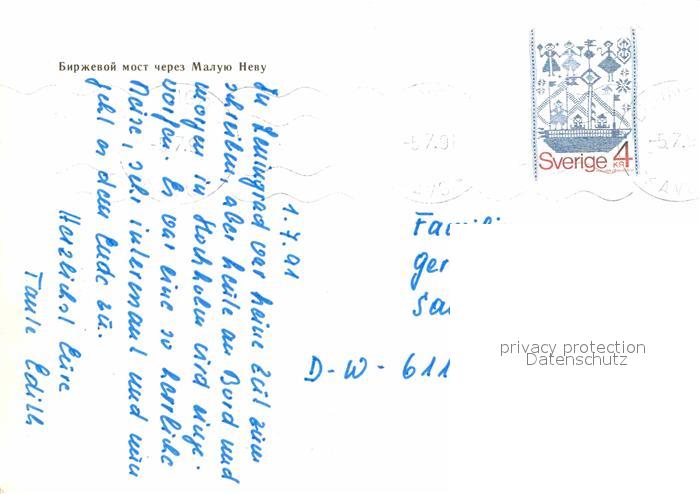 Биржевой мост через Малую Неву
Sverige 4
KR
-5.7.91
-5.7.9
1.7.91
In Leningrad war keine Zeit zum
schreiben, aber heute an Bord und
morgen in Stockholm wird einge-
worfen. Es war eine so herrliche
Reise, sehr interessant und nun
geht es dem Ende zu.
Herzlichst Eure
Tante Edith
D-W-611
privacy protection
Datenschutz